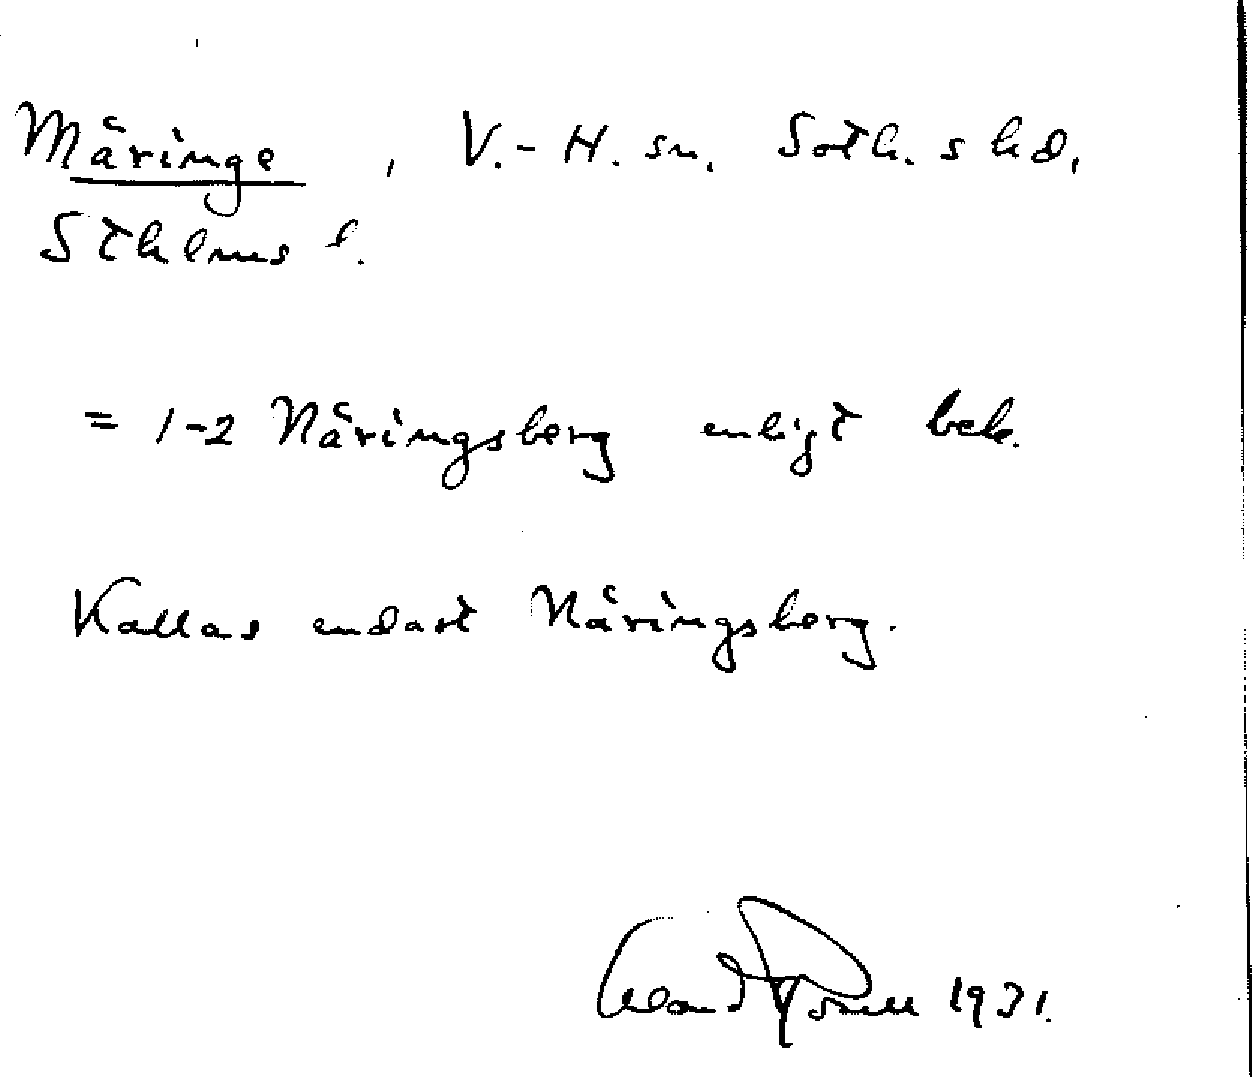 Märinge, V.-H. sn. Soth. s hd,
Sthlms l.
= 1-2 Näringsberg enligt bek.
Kallas endast Näringsberg.
1931.